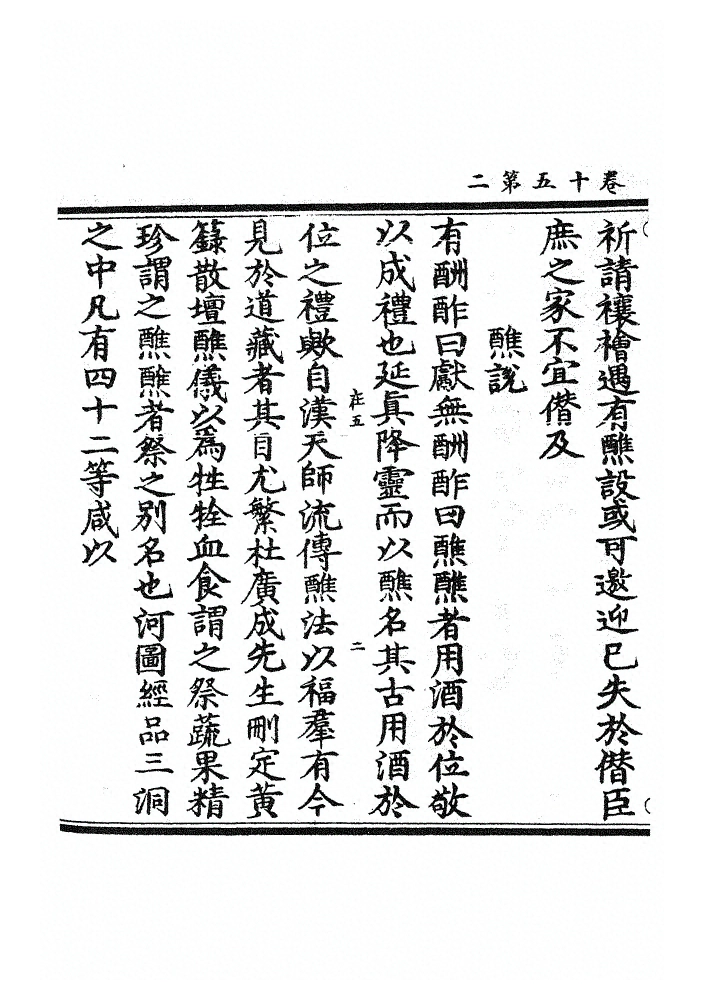 卷十五第二
祈請禳禬遇有醮設或可邀迎已失於僭臣
庶之家不宜僭及
醮說
有酬酢曰獻無酬酢曰醮醮者用酒於位敬
以成禮也延眞降靈而以醮名其古用酒於
位之禮歟自漢天師流傳醮法以福羣有今
庄五
二
見於道藏者其目尤繁杜廣成先生刪定黄
籙散壇醮儀以為牲牷血食謂之祭蔬果精
珍謂之醮醮者祭之别名也河圖經品三洞
之中凡有四十二等咸以